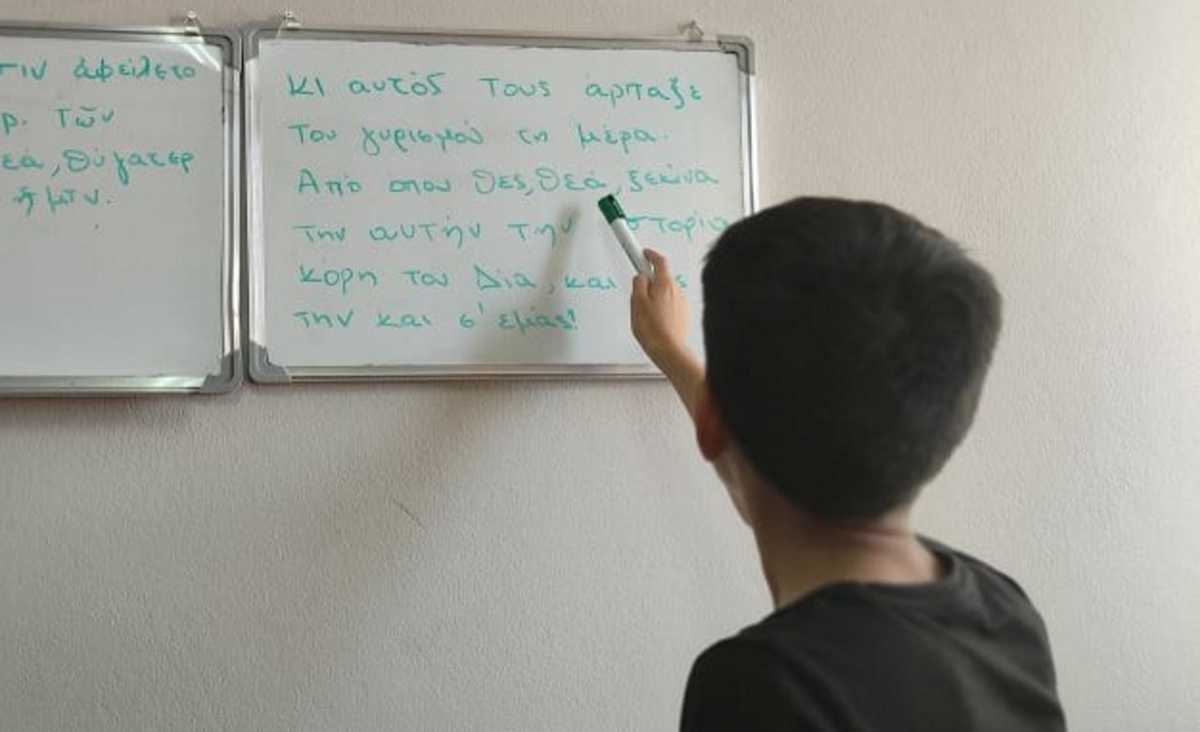 ἀφείλετο
τῶν
θύγατερ
ἡμῖν.
κι αυτός τους άρπαξε
του γυρισμού τη μέρα.
Από όπου θες, θεά, ξεκίνα
την αυτήν την
κόρη του Δία, και
την και σ' εμάς!